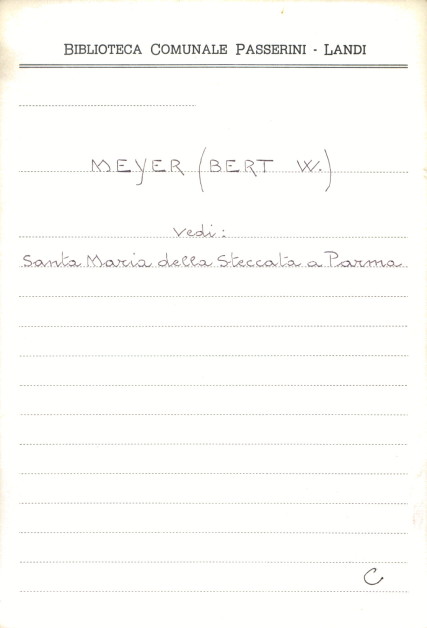 BIBLIOTECA COMUNALE PASSERINI - LANDI
MEYER (BERT W.)
vedi:
Santa Maria della Steccata a Parma
C